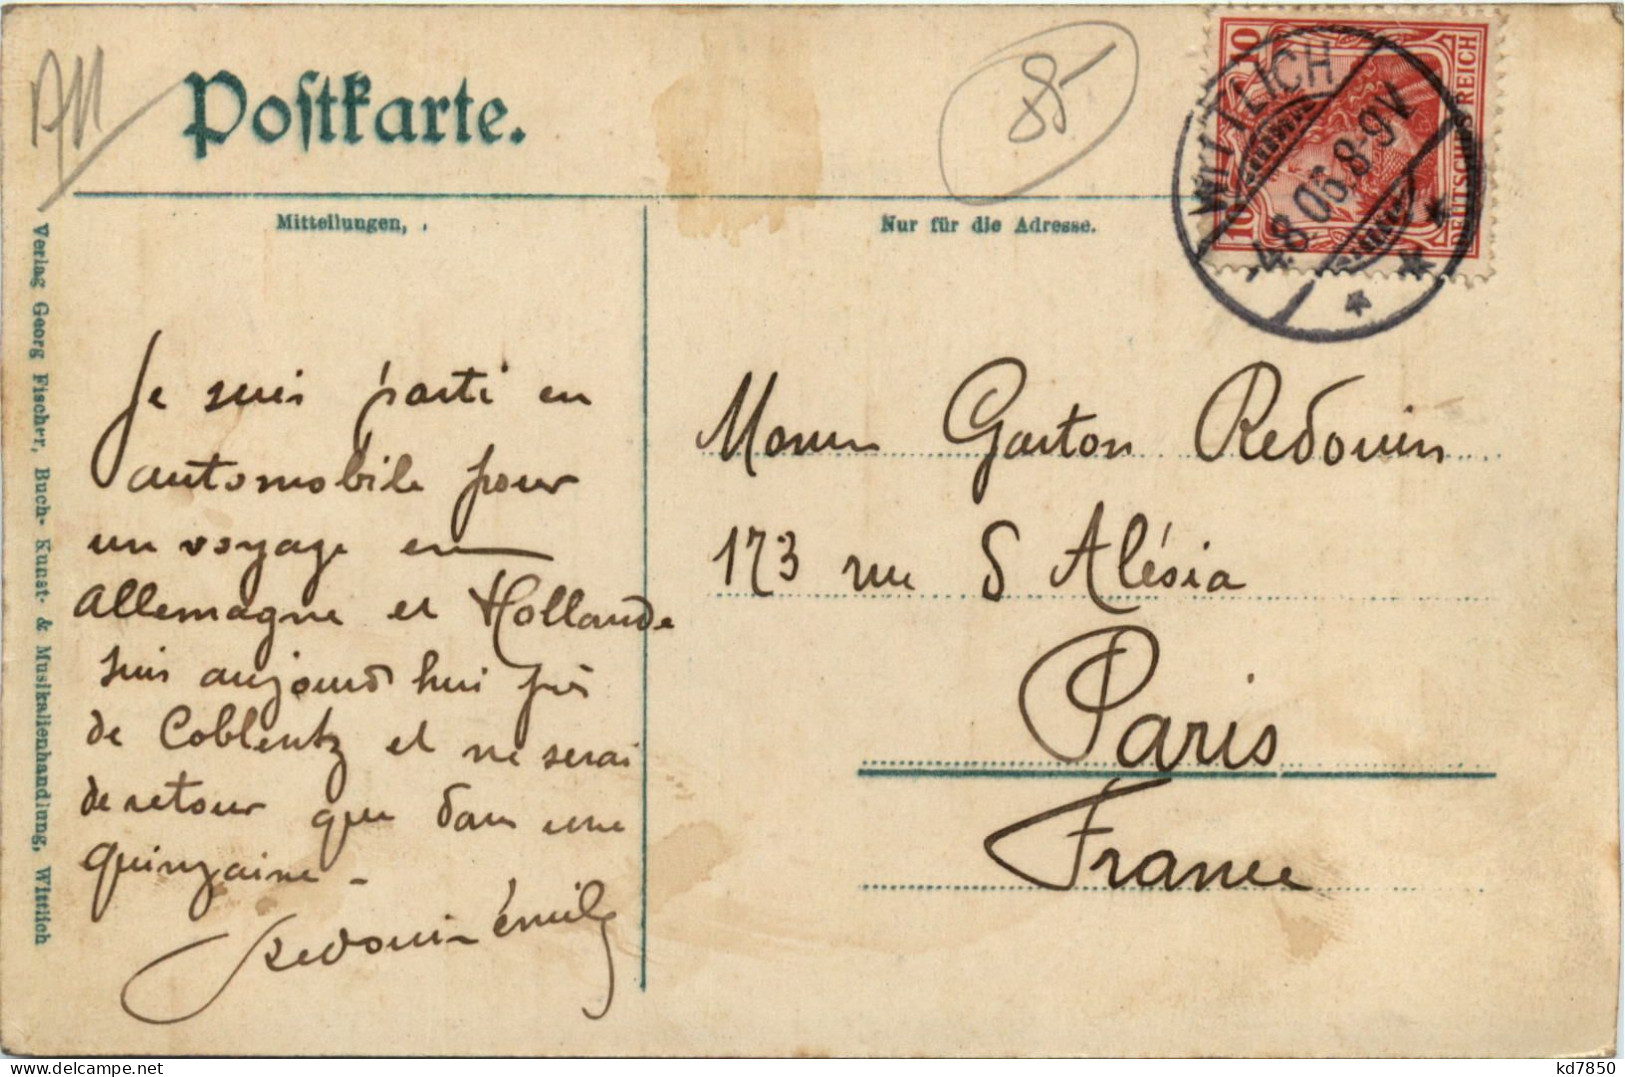 All
Postkarte.
85
WITTLICH
-4.8.06.8-9V.
10
10
DEUTSCHES REICH
Mitteilungen,
Nur für die Adresse.
Verlag Georg Fischer, Buch- Kunst- & Musikalienhandlung, Wittlich
Je suis parti en
automobile pour
un voyage en
Allemagne et Hollande
suis aujourd'hui près
de Coblentz et ne serai
de retour que dans une
quinzaine -
Redouin émile
Gaston Redouin
173 rue d'Alésia
Paris
France
kd7850